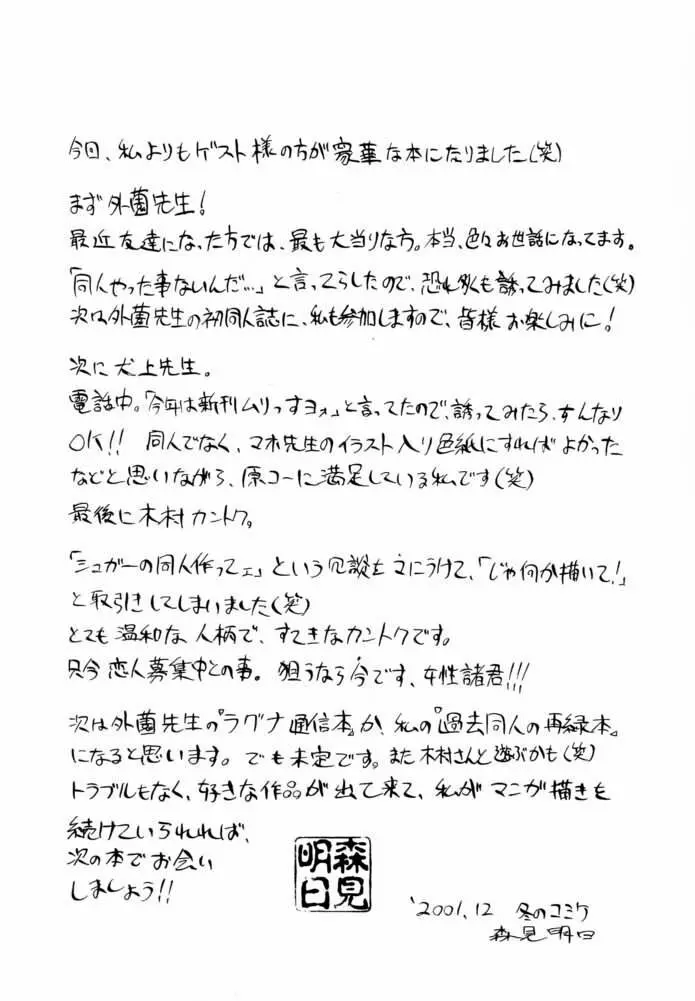 今回、私よりもゲスト様の方が豪華な本になりました(笑)
まず外薗先生！
最近友達になった方では、最も大当りな方。本当、色々お世話になってます。
「同人やった事ないんだ…」と言ってらしたので、恐れ多くも誘ってみました(笑)
次は外薗先生の初同人誌に、私も参加しますので、皆様お楽しみに！
次に犬上先生。
電話中。「今年は新刊ムリっすヨォ」と言ってたので、誘ってみたら、すんなり
OK!! 同人でなく、マホ先生のイラスト入り色紙にすればよかった
などと思いながら、原コーに満足している私です(笑)
最後に木村カントク。
「シュガーの同人作ってェ」という冗談をマにうけて、「じゃ何か描いて！」
と取引きしてしまいました(笑)
とても温和な人柄で、すてきなカントクです。
只今恋人募集中との事。狙うなら今です、女性諸君!!!
次は外薗先生の『ラグナ通信本』か、私の『過去同人の再録本』
になると思います。でも未定です。また木村さんと遊ぶかも(笑)
トラブルもなく、好きな作品が出て来て、私がマンガ描きを
続けていられれば、
次の本でお会い
しましょう!!
森見
明日
'2001.12 冬のコミケ
森見明日